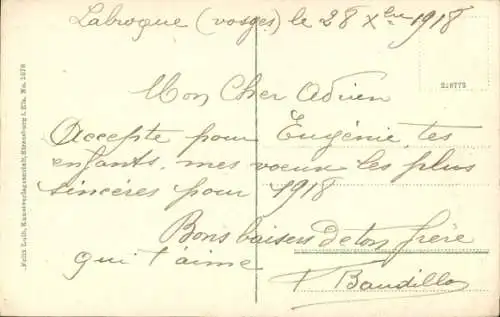 Labroque (vosges) le 28 Xbre 1918
Mon Cher Adrien
Accepte pour Eugénie, tes
enfants, mes voeux les plus
sincères pour 1918
Bons baisers de ton frère
qui t'aime
F Baudillo
218773
Felix Luib, Kunstverlagsanstalt, Strassburg i. Els. No. 1578